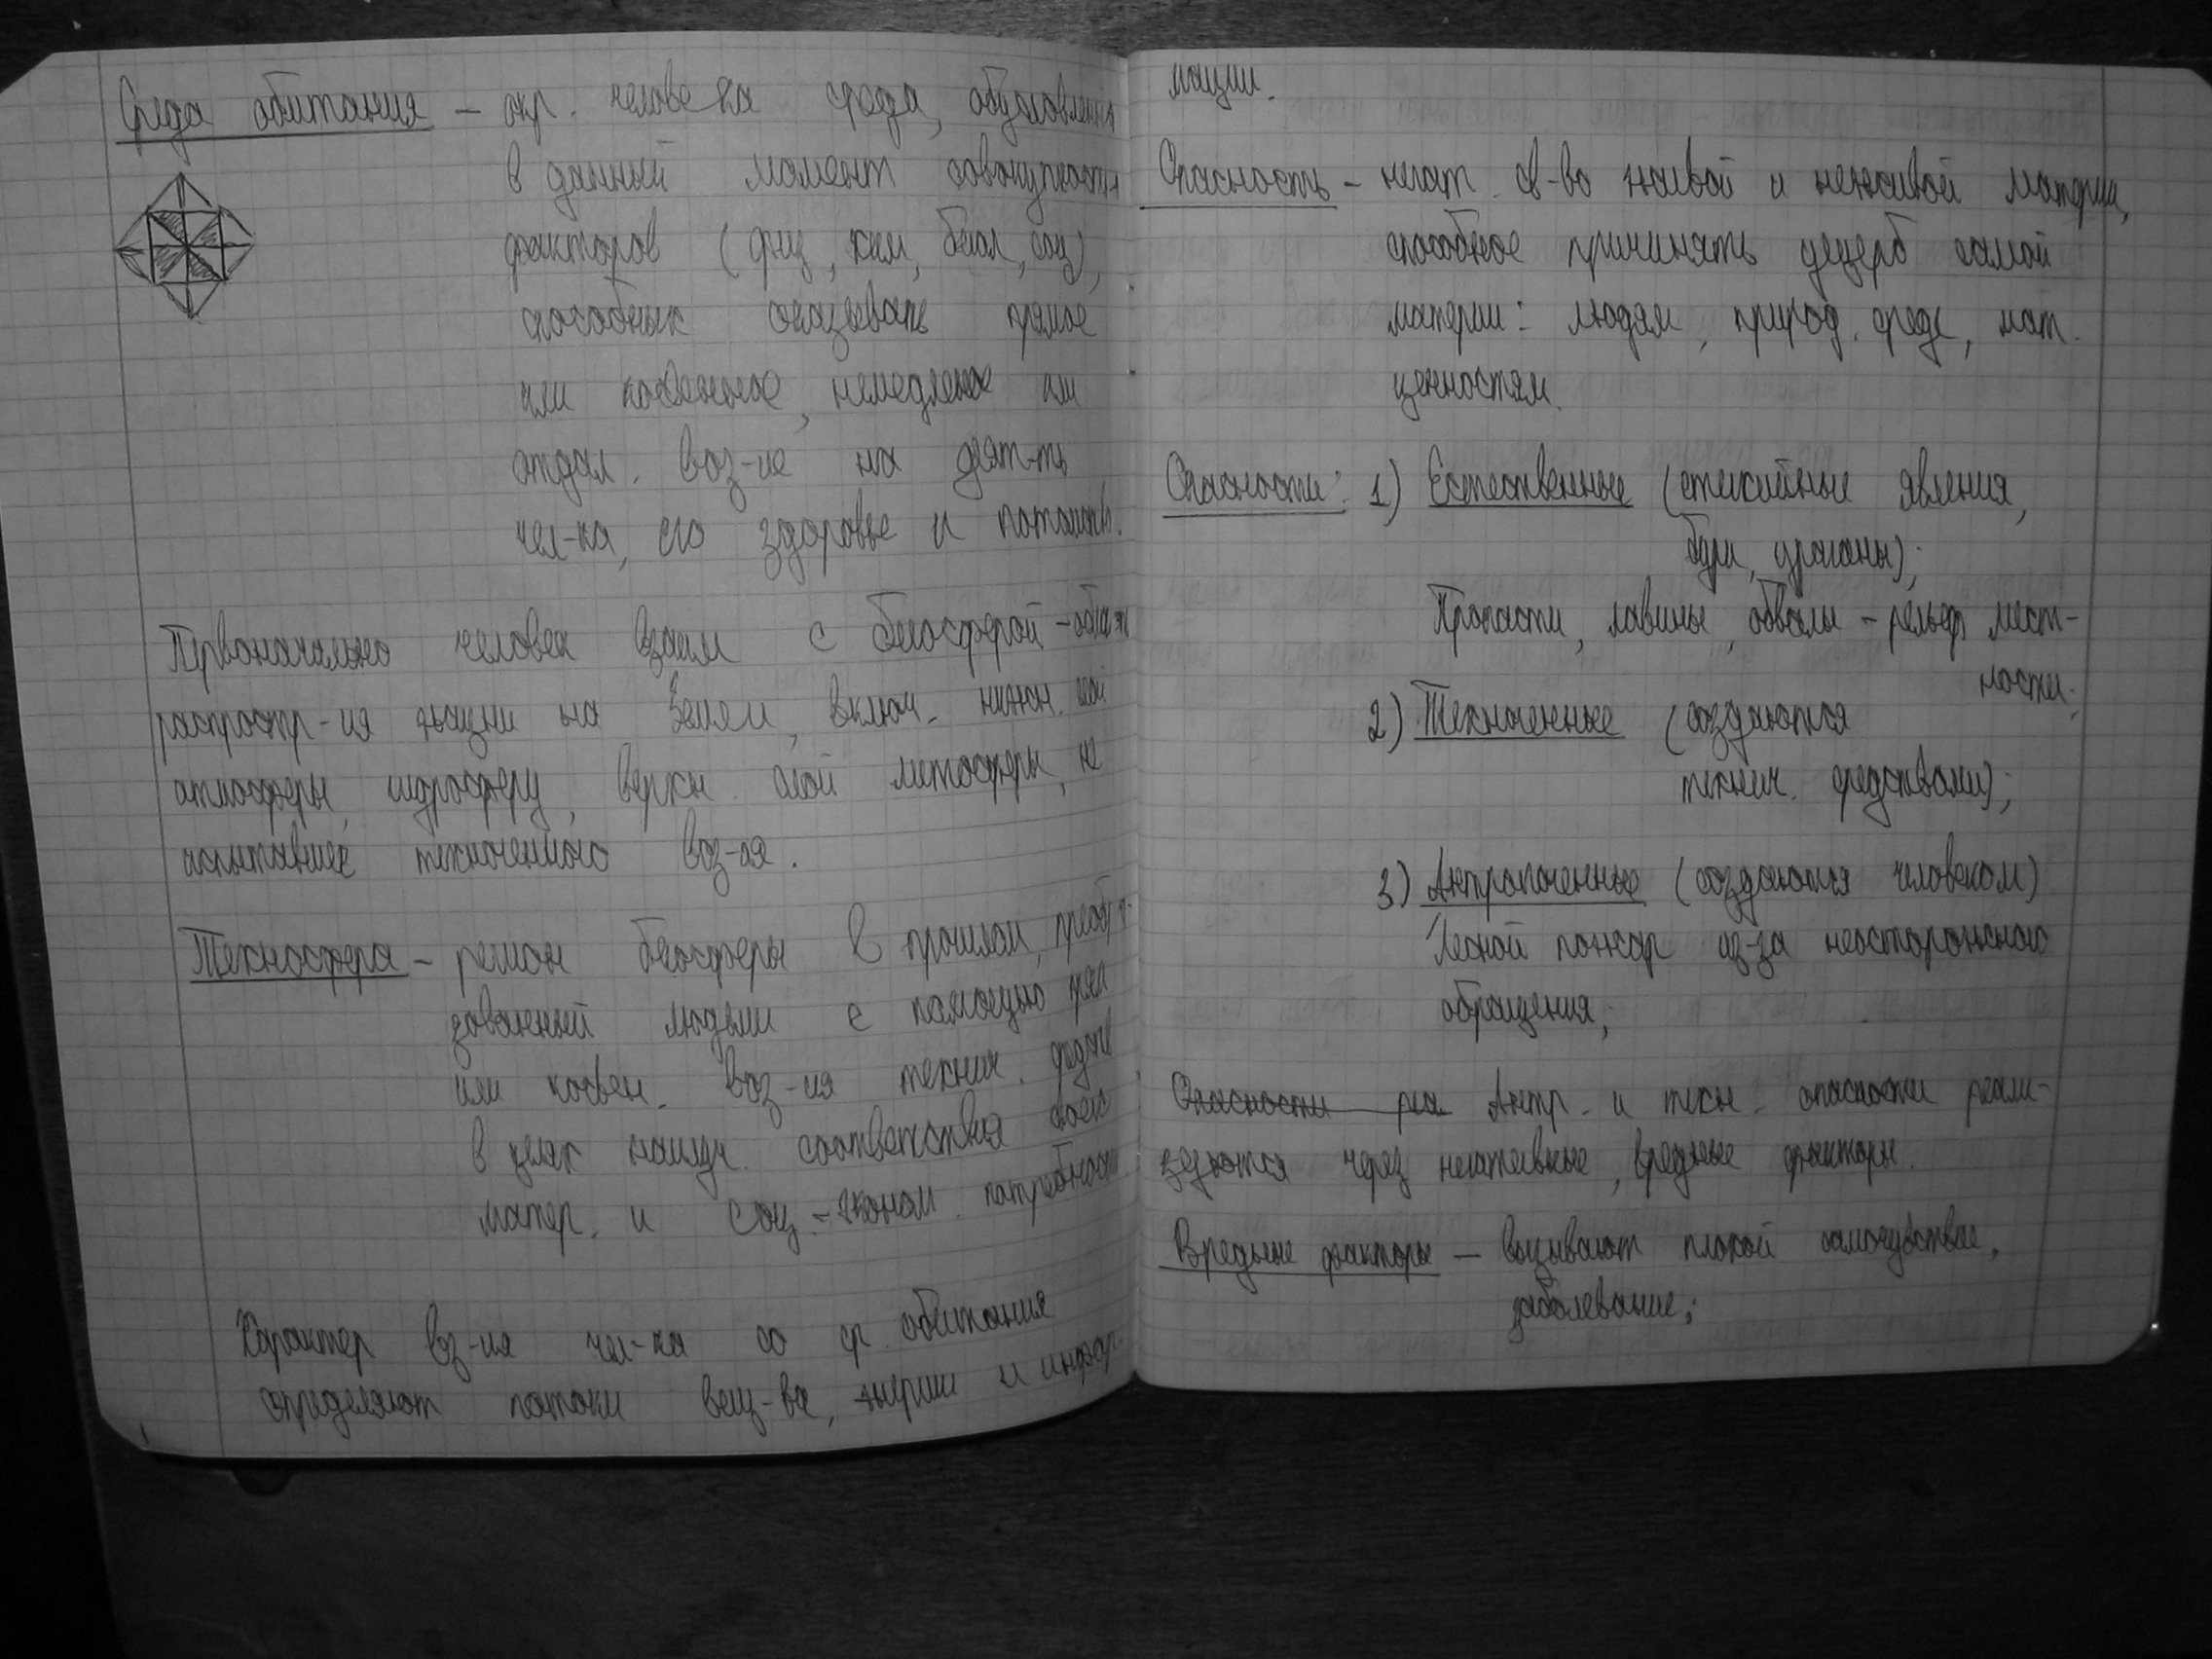 Среда обитания – окр. человека среда, обусловленн
в данный момент совокупностью
факторов (физ, хим, биол, соц),
способных оказывать прямое
или косвенное, немедленное или
отдал. воз-ие на деят-ть
чел-ка, его здоровье и потомств.
Первоначально человек взаим с биосферой –
распростр-ия жизни на Земле, включ. нижн. слой
атмосферы, гидросферу, верхн. слой литосферы, не
испытавшие техногенного воз-ия.
Техносфера – регион биосферы в прошлом,
зованный людьми с помощью
или косвен. воз-ия технич.
в целях наилуч. соответствия
матер. и соц.-эконом. потребност
Характер вз-ия чел-ка со ср. обитания
определяют потоки вещ-ва, энергии и инфор-
мации.
Опасность – негат. св-во живой и неживой материи,
способное причинять ущерб самой
материи: людям, природ. среде, мат.
ценностям.
Опасности: 1) Естественные (стихийные явления,
бури, ураганы);
Пропасти, лавины, обвалы – рельеф мест-
ности;
2) Техногенные (создаются
технич. средствами);
3) Антропогенные (создаются человеком)
Лесной пожар из-за неосторожного
обращения;
Опасности реа Антр. и техн. опасности реали-
зуются через негативные, вредные факторы.
Вредные факторы – вызывают плохой самочувствие,
заболевание;